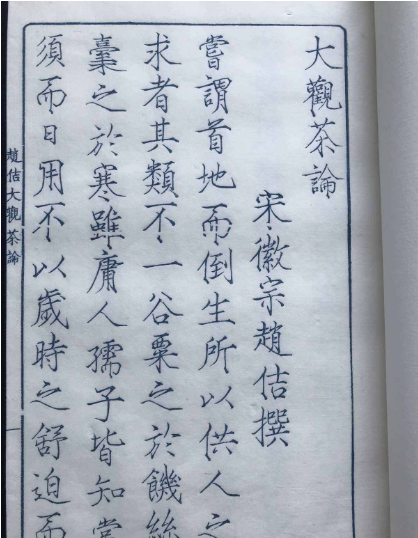 大觀茶論
宋徽宗趙佶撰
嘗謂首地而倒生所以供人之
求者其類不一谷粟之於饑絲
枲之於寒雖庸人孺子皆知常
須而日用不以歲時之舒迫而
趙佶大觀茶論
一